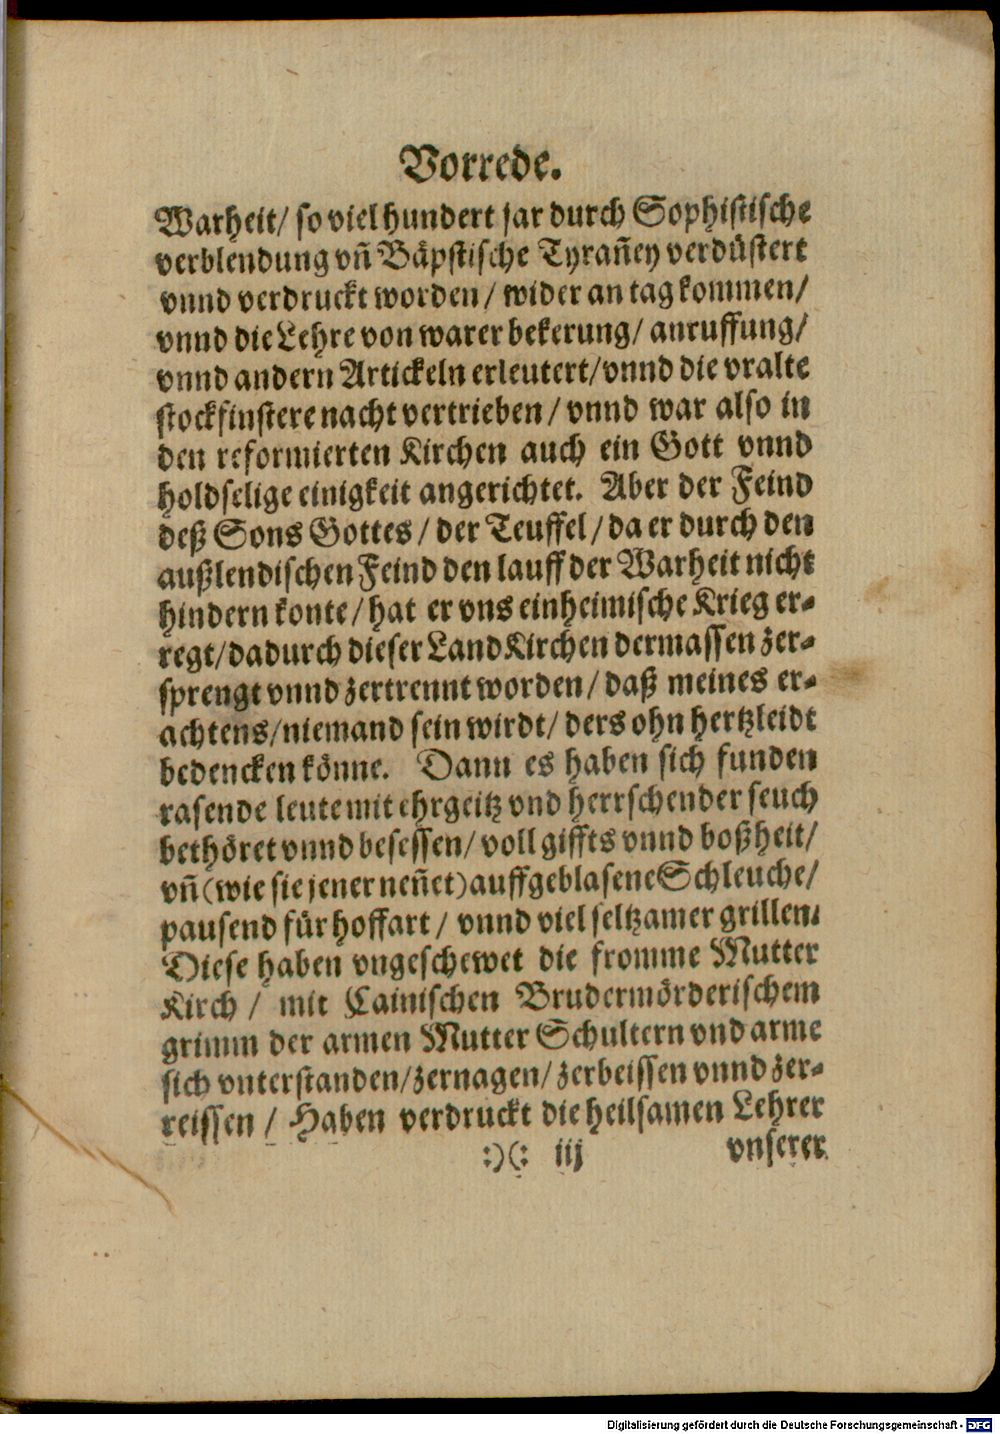 Vorrede.
Warheit/ so viel hundert jar durch Sophistische
verblendung vñ Bäpstische Tyrañey verdüstert
vnnd verdruckt worden/ wider an tag kommen/
vnnd die Lehre von warer bekerung/ anruffung/
vnnd andern Artickeln erleutert/vnnd die vralte
stockfinstere nacht vertrieben/ vnnd war also in
den reformierten Kirchen auch ein Gott vnnd
holdselige einigkeit angerichtet. Aber der Feind
deß Sons Gottes/ der Teuffel/ da er durch den
außlendischen Feind den lauff der Warheit nicht
hindern konte/ hat er vns einheimische Krieg er-
regt/dadurch dieser Land Kirchen dermassen zer-
sprengt vnnd zertrennt worden/ daß meines er-
achtens/niemand sein wirdt/ ders ohn hertzleidt
bedencken könne. Dann es haben sich funden
rasende leute mit ehrgeitz vnd herrschender seuch
bethöret vnnd besessen/ voll giffts vnnd boßheit/
vñ (wie sie jener neñet) auffgeblasene Schleuche/
pausend für hoffart/ vnnd viel seltzamer grillen.
Diese haben vngeschewet die fromme Mutter
Kirch/ mit Cainischen Brudermörderischem
grimm der armen Mutter Schultern vnd arme
sich vnterstanden/zernagen/ zerbeissen vnnd zer-
reissen/ Haben verdruckt die heilsamen Lehrer
:)(: iij vnserer
Digitalisierung gefördert durch die Deutsche Forschungsgemeinschaft - DFG